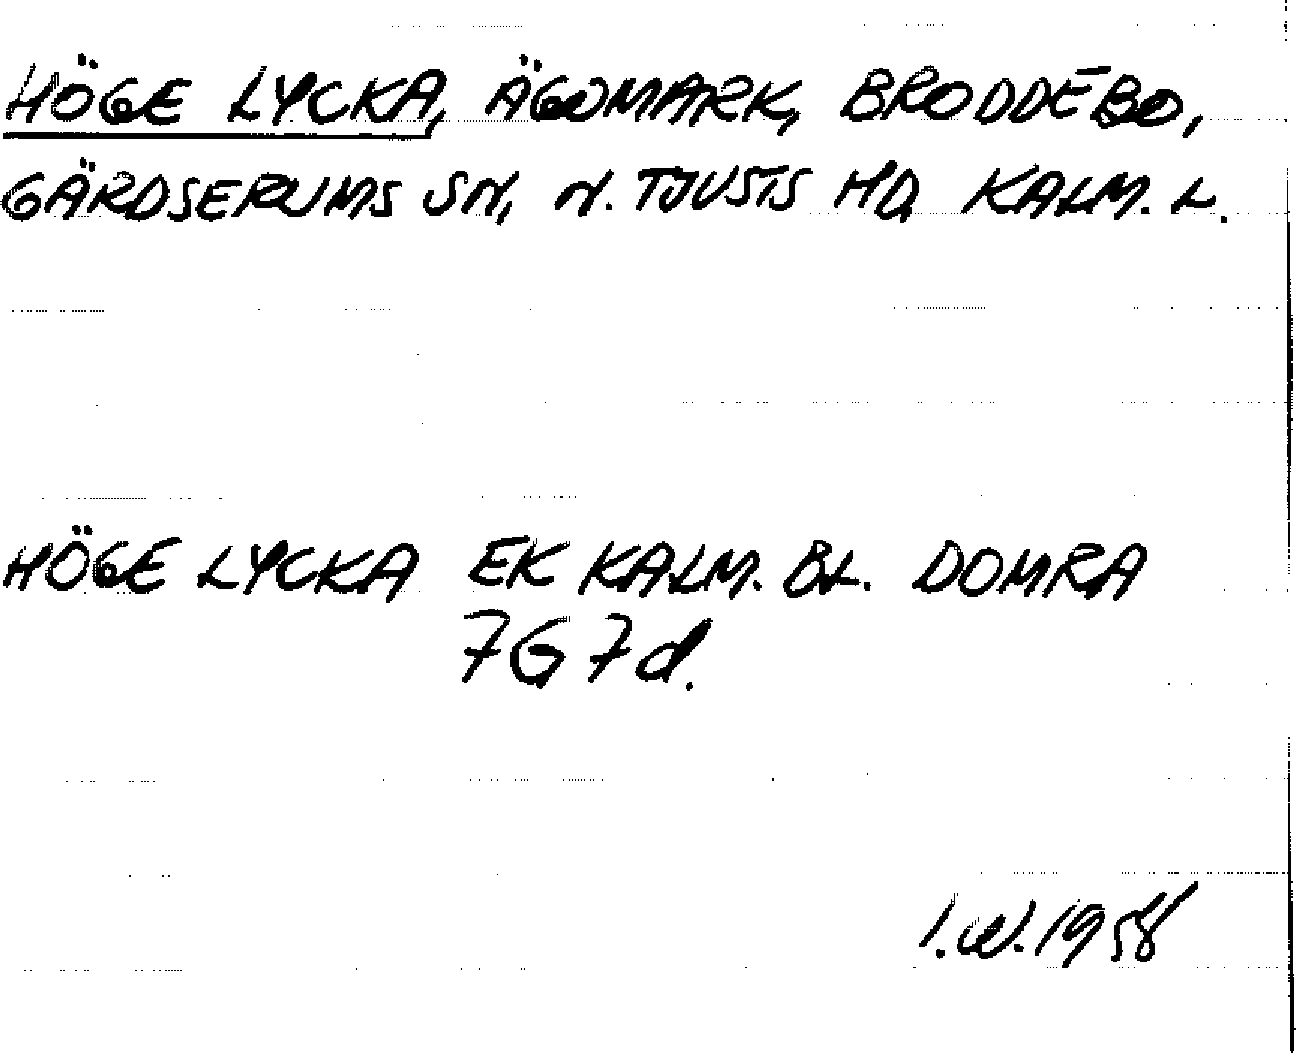 HÖGE LYCKA, ÄGOMARK, BRODDEBO,
GÄRDSERUMS SN, N. TJUSTS HD, KALM. L.
HÖGE LYCKA EK KALM. BL. DOMRA
7G 7d.
I.W. 1958